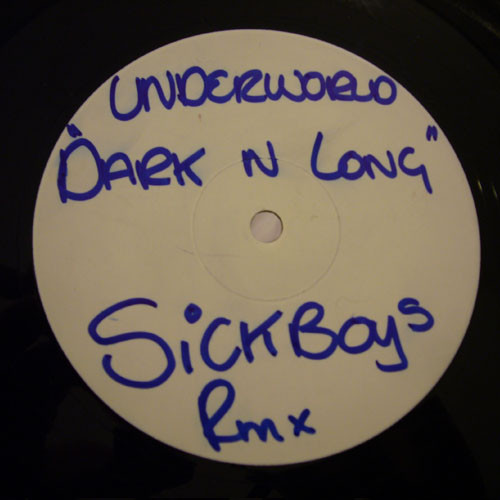 UNDERWORLD
"DARK N LONG"
SICKBOYS
Rmx